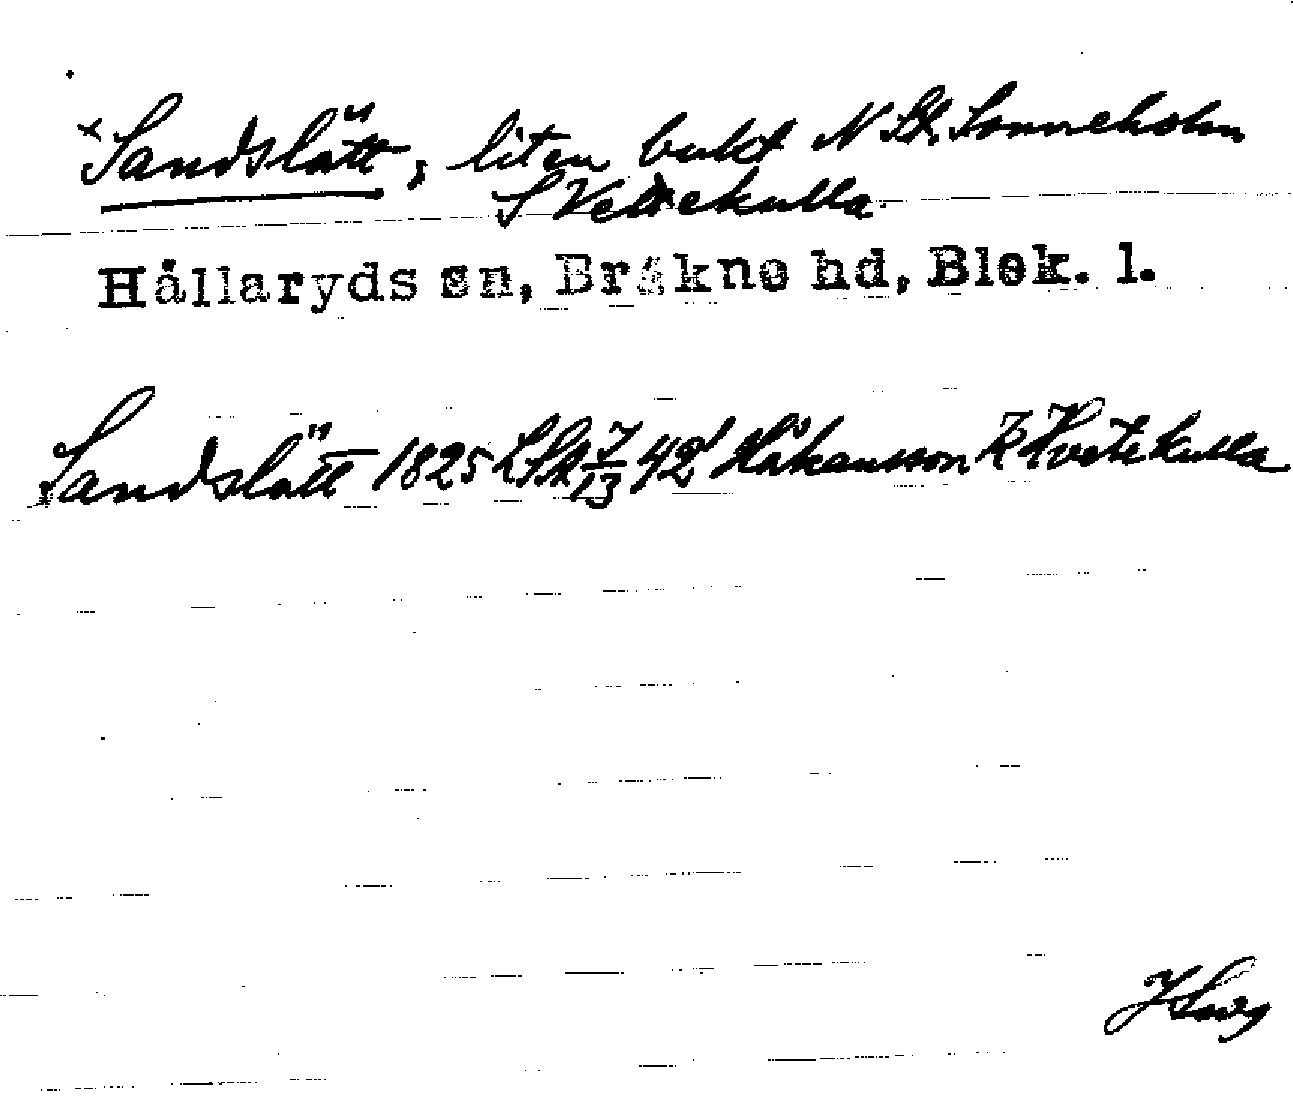 × Sandslätt, liten bukt N St. Sonneholm
S Vettekulla
Hållaryds sn, Bräkne hd, Blek. l.
Sandslätt 1825 LSk 7/13 42 Håkansson K Hvitekulla